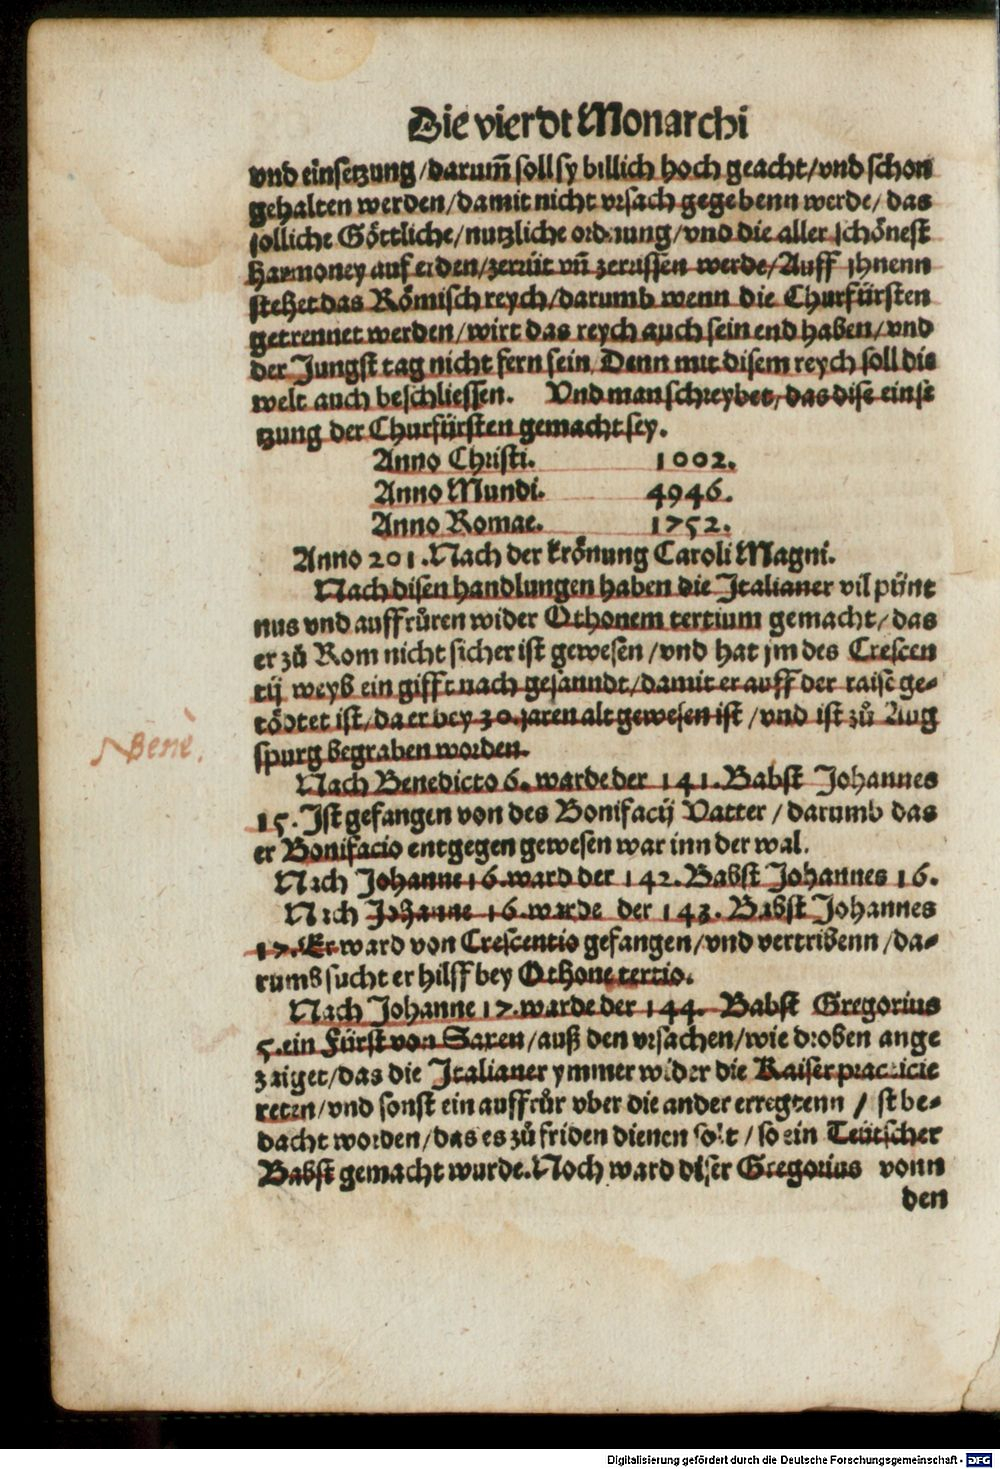 Die vierdt Monarchi
vnd einsetzung/darum̃ soll sy billich hoch geacht/vnd schon
gehalten werden/damit nicht vrsach gegebenn werde/das
solliche Göttliche/nutzliche ordnung/vnd die aller schönest
Harmoney auf erden/zerrüt vñ zerrissen werde/Auff jhnenn
stehet das Römisch reych/darumb wenn die Churfürsten
getrennet werden/wirt das reych auch sein end haben/vnd
der Jungst tag nicht fern sein. Denn mit disem reych soll die
welt auch beschliessen. Vnd man schreybet, das dise einse
tzung der Churfürsten gemacht sey.
Anno Christi. 1002.
Anno Mundi. 4946.
Anno Romae. 1752.
Anno 201. Nach der krönung Caroli Magni.
Nach disen handlungen haben die Italianer vil pünt
nus vnd auffrůren wider Othonem tertium gemacht/das
er zů Rom nicht sicher ist gewesen/vnd hat jm des Crescen
tij weyb ein gifft nach gesanndt/damit er auff der raise ge-
tödtet ist/da er bey 30. jaren alt gewesen ist/vnd ist zů Aug
spurg begraben worden.
Bene.
Nach Benedicto 6. warde der 141. Babst Johannes
15. Ist gefangen von des Bonifacij Vatter/darumb das
er Bonifacio entgegen gewesen war inn der wal.
Nach Johanne 16. ward der 142. Babst Johannes 16.
Nach Johanne 16. warde der 143. Babst Johannes
17. Er ward von Crescentio gefangen/vnd vertribenn/da-
rumb sucht er hilff bey Othone tertio.
Nach Johanne 17. warde der 144. Babst Gregorius
5. ein Fürst von Saxen/auß den vrsachen/wie droben ange
zaiget/das die Italianer ymmer wider die Kaiser practicie
reten/vnd sonst ein auffrůr vber die ander erregtenn/ist be-
dacht worden/das es zů friden dienen solt/so ein Teütscher
Babst gemacht wurde. Noch ward diser Gregorius vonn
den
Digitalisierung gefördert durch die Deutsche Forschungsgemeinschaft - DFG